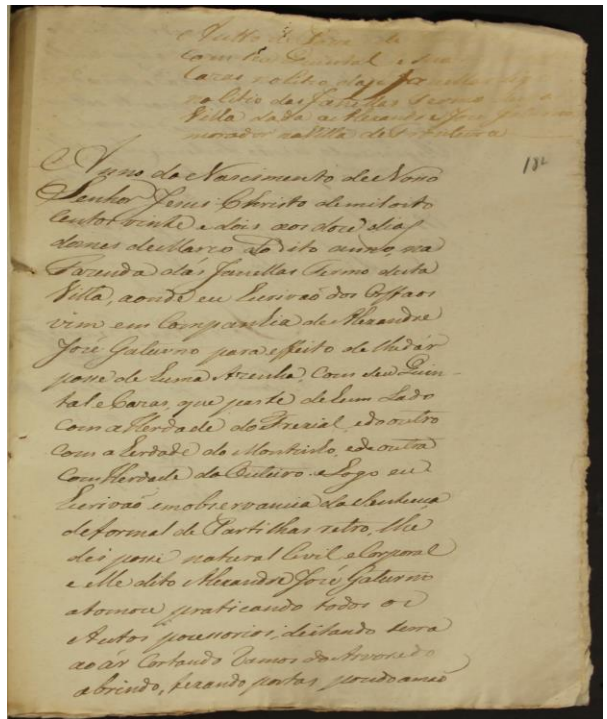 Autto de Posse de
com seu Quintal e suas
Cazas no citio das
no Citio das Janellas Termo desta
Villa dada a Alexandre José Galurno
morador na Villa de
182
Anno do Nascimento de Nosso
Senhor Jesus Christo de mil oito
centos vinte e dois aos doze dias
do mes de Março do dito anno, na
Fazenda das Janellas Termo desta
Villa, aonde eu Escrivaõ dos Orffaos
vim em Companhia de Alexandre
José Galurno para effeito de lhe dár
posse de huma Azenha, Com seu Quin-
tal e Cazas, que parte de hum Lado
com a Herdade do Freixial, e do outro
com a herdade do Montinho, e de outra
com Herdade do Outeiro e Logo eu
Escrivaõ em observancia da Sentença
de formal de Partilhas retro, lhe
dei posse natural Civil e Corporal
e elle dito Alexandre José Galurno
a tomou praticando todos os
Autos possesorios, deitando terra
ao ár Cortando Ramos do Arvoredo
abrindo, fexando portas pondo a maõ